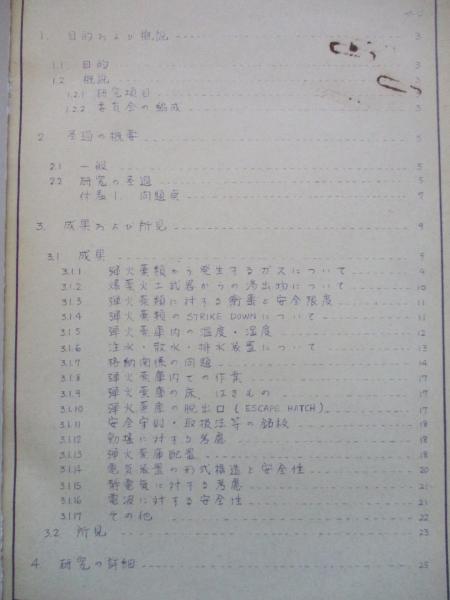 1. 目的および概説 3
1.1 目的 3
1.2 概説 3
1.2.1 研究項目 3
1.2.2 委員会の編成 3
2 経過の概要 5
2.1 一般 5
2.2 研究の経過 5
付表1. 問題点 7
3. 成果および所見 9
3.1 成果 9
3.1.1 弾火薬類から発生するガスについて 9
3.1.2 爆薬火工武器からの漏出物について 10
3.1.3 弾火薬類に対する衝撃と安全限度 11
3.1.4 弾火薬類のSTRIKE DOWNについて 11
3.1.5 弾火薬庫内の温度・湿度 12
3.1.6 注水・散水・排水装置について 13
3.1.7 移動関係の問題 14
3.1.8 弾火薬庫内での作業 17
3.1.9 弾火薬庫の床、はきもの 17
3.1.10 弾火薬庫の脱出口(ESCAPE HATCH) 17
3.1.11 安全守則・取扱法等の銘板 18
3.1.12 勤務に対する考慮 18
3.1.13 弾火薬庫配置 18
3.1.14 電気装置の形式構造と安全性 20
3.1.15 静電気に対する考慮 21
3.1.16 電波に対する安全性 21
3.1.17 その他 22
3.2 所見 23
4. 研究の詳細 25